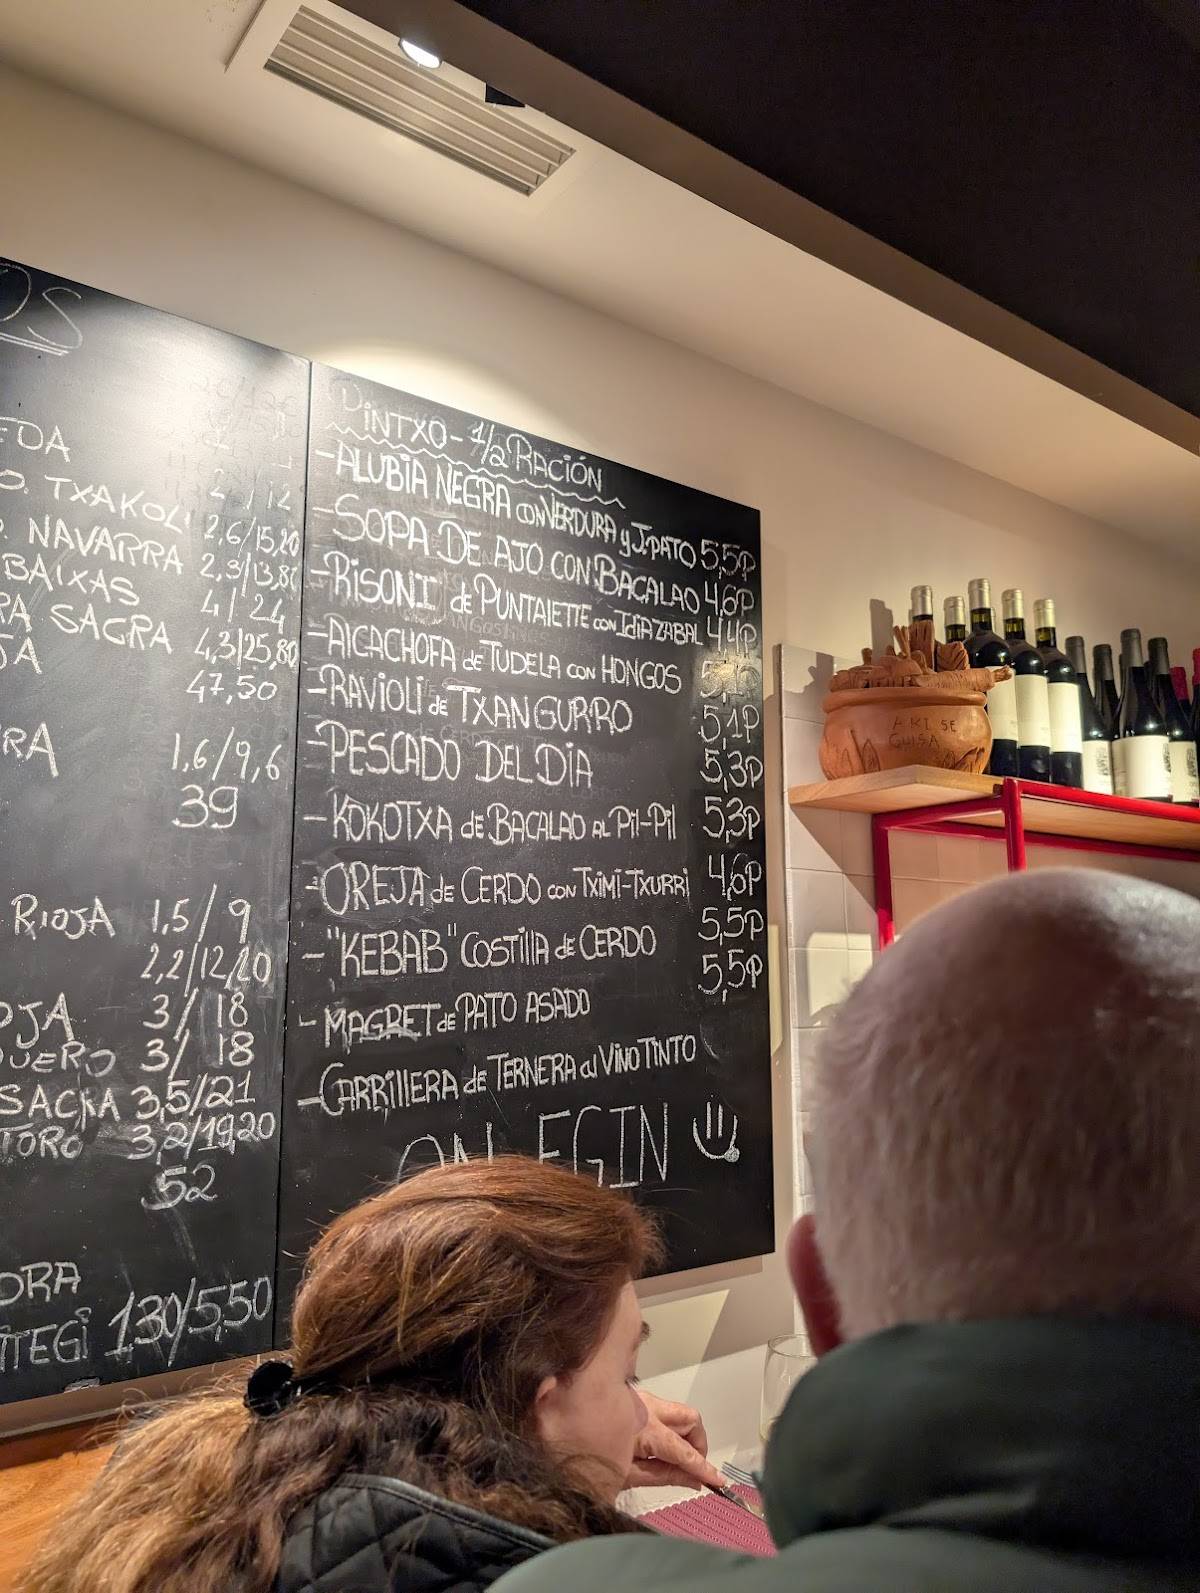 OS
EDA
O. TXAKOLI 2/12
. NAVARRA 2,6/15,20
BAIXAS 2,3/13,80
RA SAGRA 4/24
JA 4,3/25,80
47,50
RA 1,6/9,6
39
RIOJA 1,5/9
2,2/12,20
OJA 3/18
DUERO 3/18
SACRA 3,5/21
TORO 3,2/19,20
52
ORA
ITEGI 1,30/5,50
PINTXO - 1/2 RACIÓN
- ALUBIA NEGRA CON VERDURA y J.PATO 5,5P
- SOPA DE AJO CON BACALAO 4,6P
- RISONI de PUNTALETTE CON IDIAZABAL 4,4P
- ALCACHOFA de TUDELA CON HONGOS 5,1P
- RAVIOLI de TXANGURRO 5,1P
- PESCADO DEL DIA 5,3P
- KOKOTXA de BACALAO AL PIL-PIL 5,3P
- OREJA de CERDO CON TXIMI-TXURRI 4,6P
- "KEBAB" COSTILLA de CERDO 5,5P
- MAGRET de PATO ASADO 5,5P
- CARRILLERA de TERNERA al VINO TINTO
ON EGIN
AKI SE
GUISA